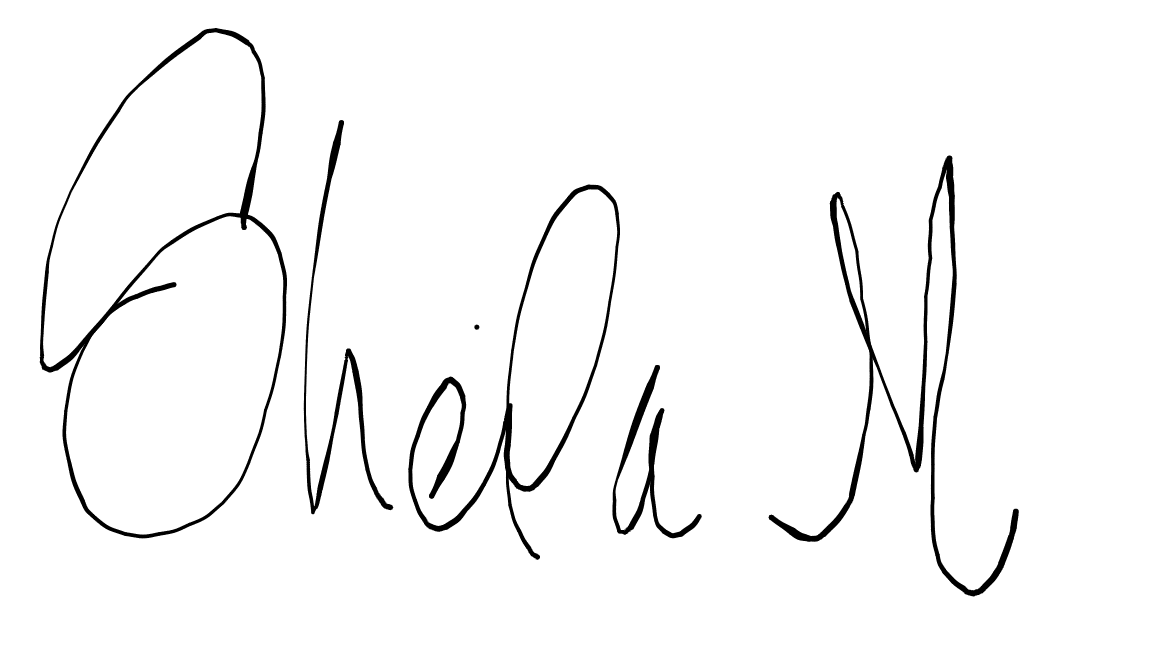 Sheila M